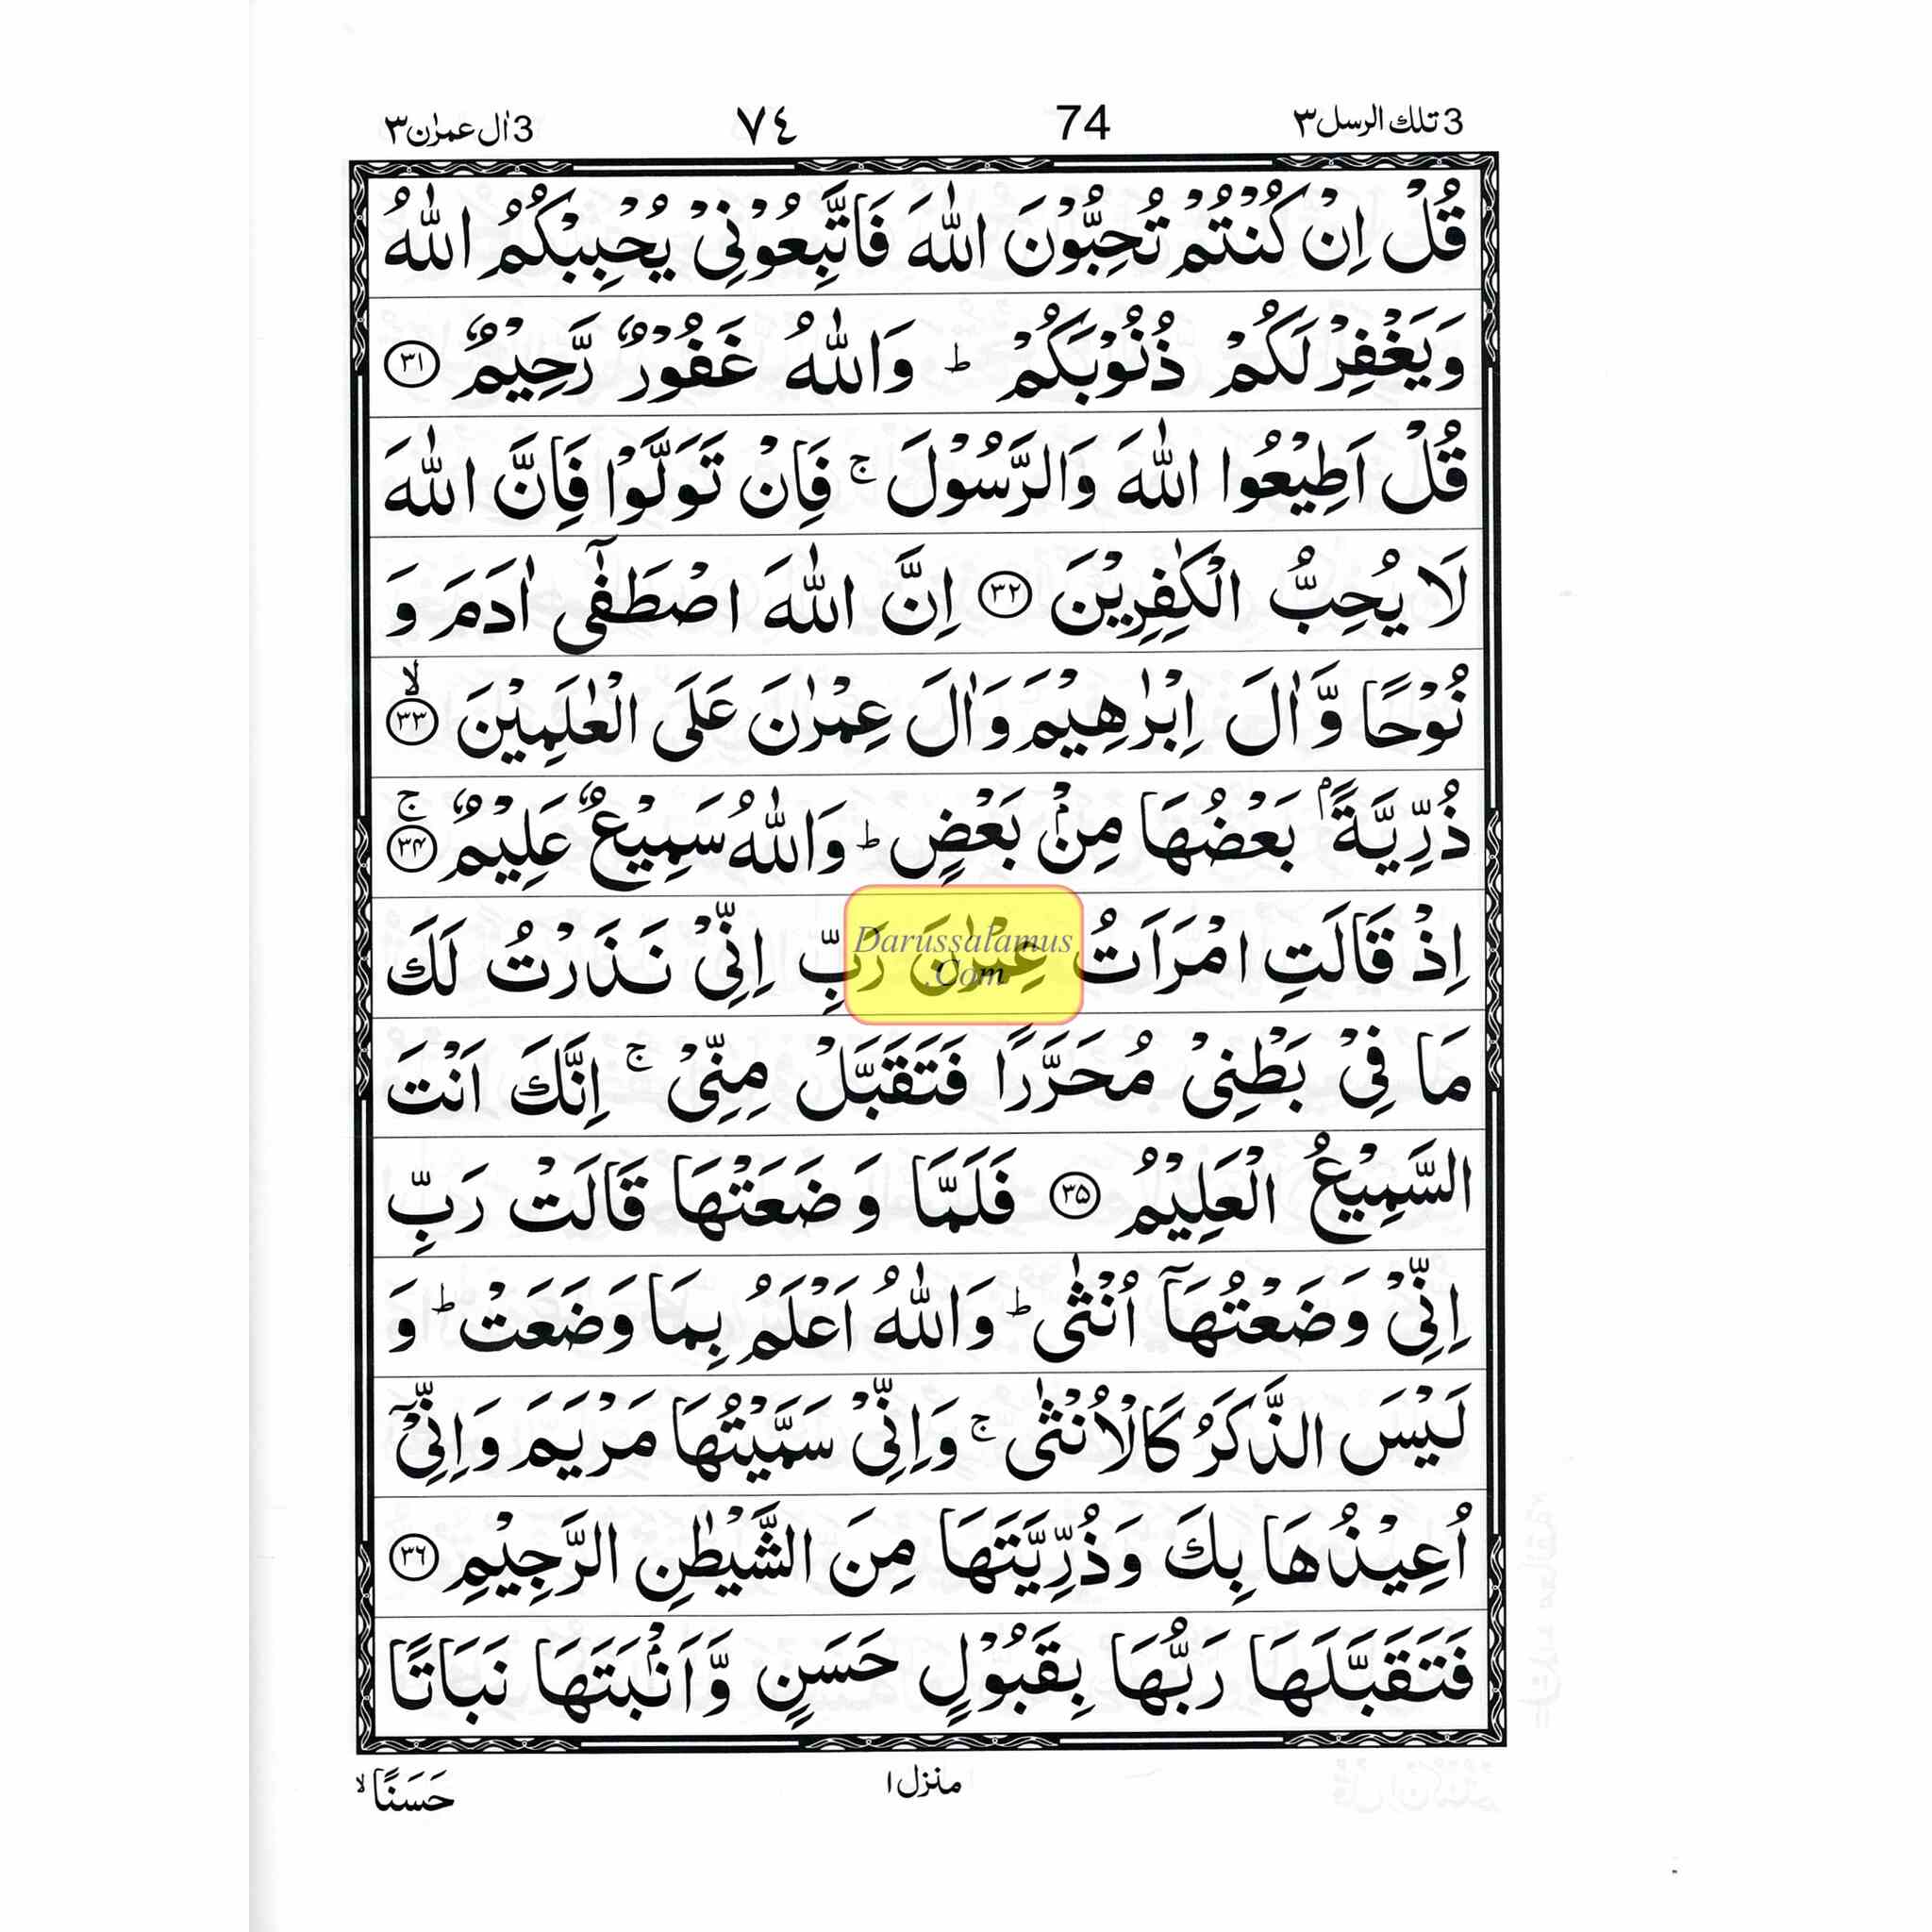 3 تلك الرسل ٣ 74 ٧٤ 3 اٰل عمرٰن ٣
قُلْ اِنْ كُنْتُمْ تُحِبُّوْنَ اللّٰهَ فَاتَّبِعُوْنِيْ يُحْبِبْكُمُ اللّٰهُ
وَيَغْفِرْ لَكُمْ ذُنُوْبَكُمْ ؕ وَاللّٰهُ غَفُوْرٌ رَّحِيْمٌ ٣١
قُلْ اَطِيْعُوا اللّٰهَ وَالرَّسُوْلَ ۚ فَاِنْ تَوَلَّوْا فَاِنَّ اللّٰهَ
لَا يُحِبُّ الْكٰفِرِيْنَ ٣٢ اِنَّ اللّٰهَ اصْطَفٰۤى اٰدَمَ وَ
نُوْحًا وَّاٰلَ اِبْرٰهِيْمَ وَاٰلَ عِمْرٰنَ عَلَى الْعٰلَمِيْنَ ۙ ٣٣
ذُرِّيَّةًۢ بَعْضُهَا مِنْۢ بَعْضٍ ؕ وَاللّٰهُ سَمِيْعٌ عَلِيْمٌ ۚ ٣۴
اِذْ قَالَتِ امْرَاَتُ عِمْرٰنَ رَبِّ اِنِّيْ نَذَرْتُ لَكَ
Darussalamus
.Com
مَا فِيْ بَطْنِيْ مُحَرَّرًا فَتَقَبَّلْ مِنِّيْ ۚ اِنَّكَ اَنْتَ
السَّمِيْعُ الْعَلِيْمُ ٣۵ فَلَمَّا وَضَعَتْهَا قَالَتْ رَبِّ
اِنِّيْ وَضَعْتُهَاۤ اُنْثٰى ؕ وَاللّٰهُ اَعْلَمُ بِمَا وَضَعَتْ ؕ وَ
لَيْسَ الذَّكَرُ كَالْاُنْثٰى ۚ وَاِنِّيْ سَمَّيْتُهَا مَرْيَمَ وَاِنِّيْۤ
اُعِيْذُهَا بِكَ وَذُرِّيَّتَهَا مِنَ الشَّيْطٰنِ الرَّجِيْمِ ٣٦
فَتَقَبَّلَهَا رَبُّهَا بِقَبُوْلٍ حَسَنٍ وَّاَنْۢبَتَهَا نَبَاتًا
منزل ١
حَسَنًا ۙ